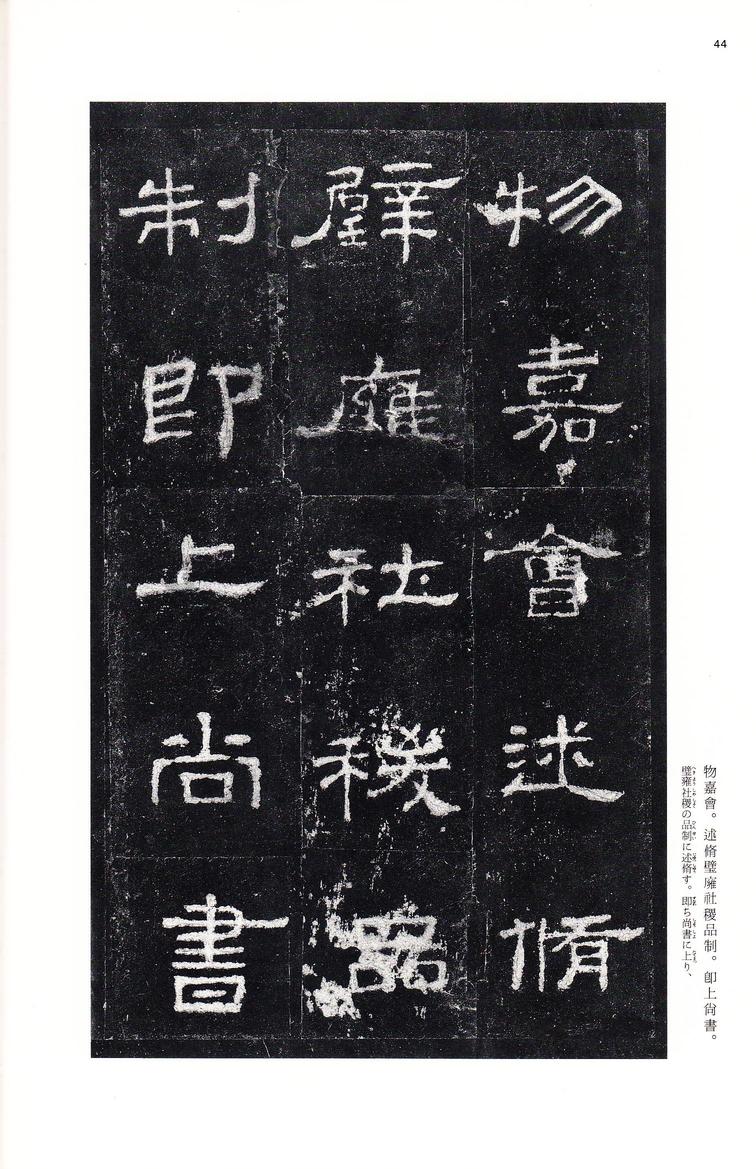 44
物嘉會述脩
璧廱社稷品
制即上尚書
物嘉會。述脩璧廱社稷品制。卽上尙書。
璧雍社稷の品制に述脩す。即ち尚書に上り、